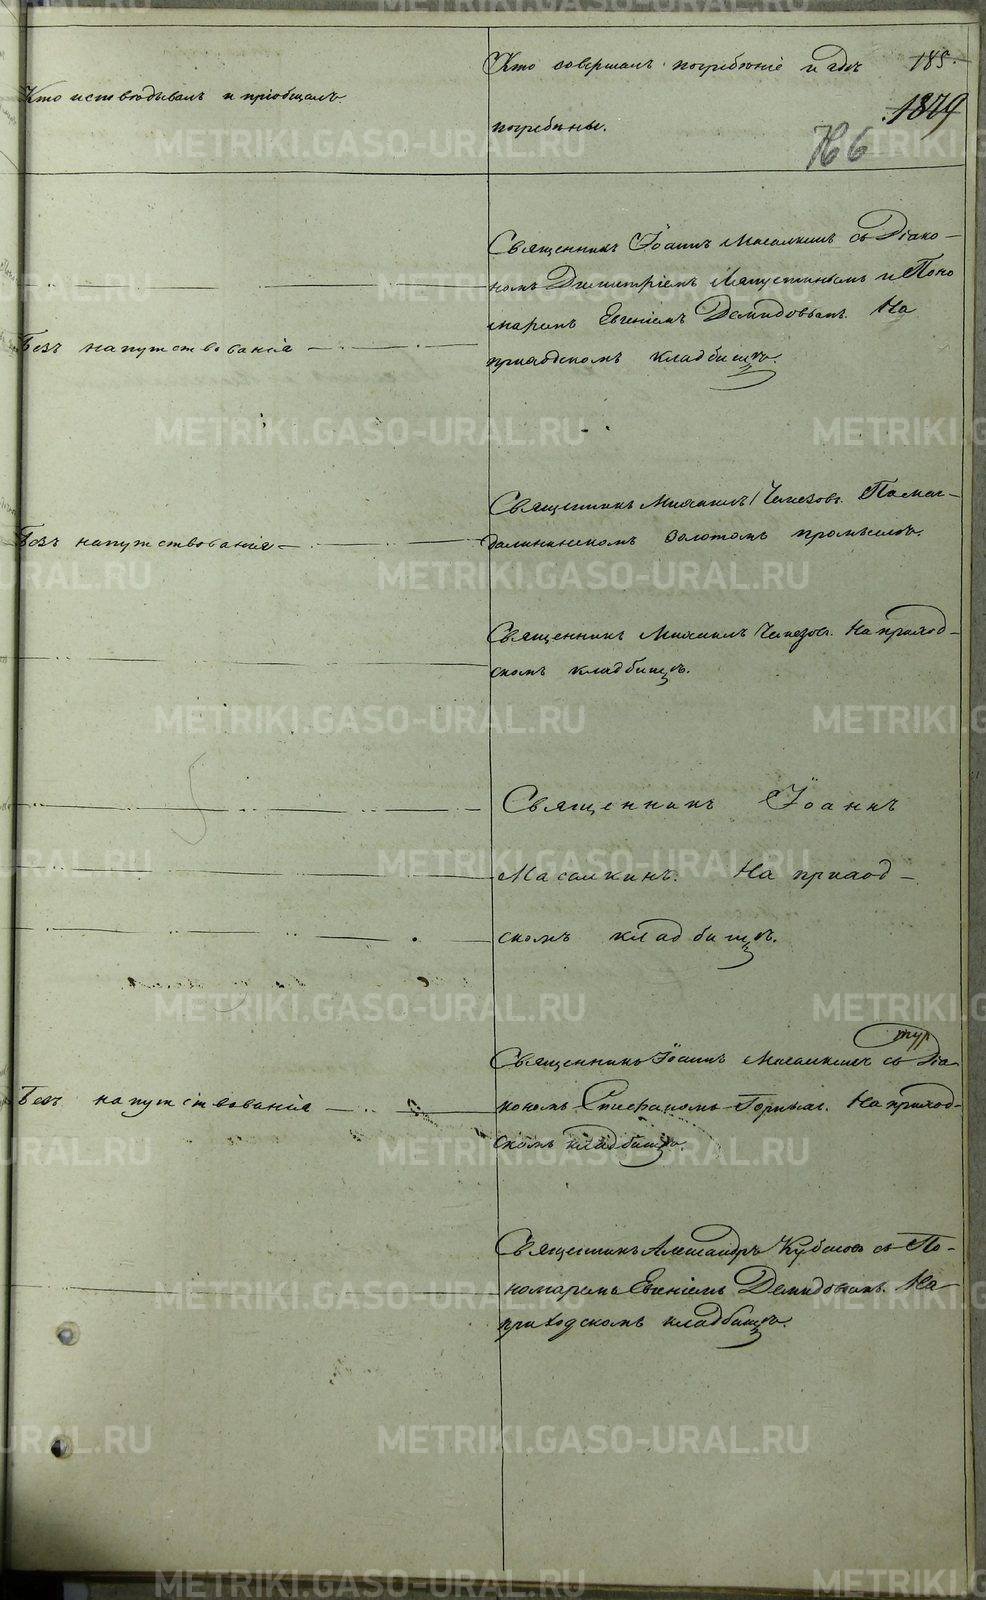 Кто исповѣдывалъ и пріобщалъ.
Кто совершалъ погребеніе и гдѣ
погребены.
185.
1879
766
Священникъ Іоаннъ Масалкинъ съ Діако-
номъ Димитріемъ Ляпустинымъ и Поно
маремъ Евгеніемъ Демидовымъ. На
приходскомъ кладбищѣ.
Безъ напутствованія
Священникъ Михаилъ На Маг-
далининскомъ золотомъ промыслѣ.
Безъ напутствованія
Священникъ Михаилъ На приход-
скомъ кладбищѣ.
Священникъ Іоаннъ
Масалкинъ. На приход-
скомъ кладбищѣ.
Священникъ Іоаннъ Масалкинъ съ Діа
кономъ Стефаномъ На приход-
скомъ кладбищѣ.
Безъ напутствованія
Священникъ Александръ съ По-
номаремъ Евгеніемъ Демидовымъ. На
приходскомъ кладбищѣ.
METRIKI.GASO-URAL.RU